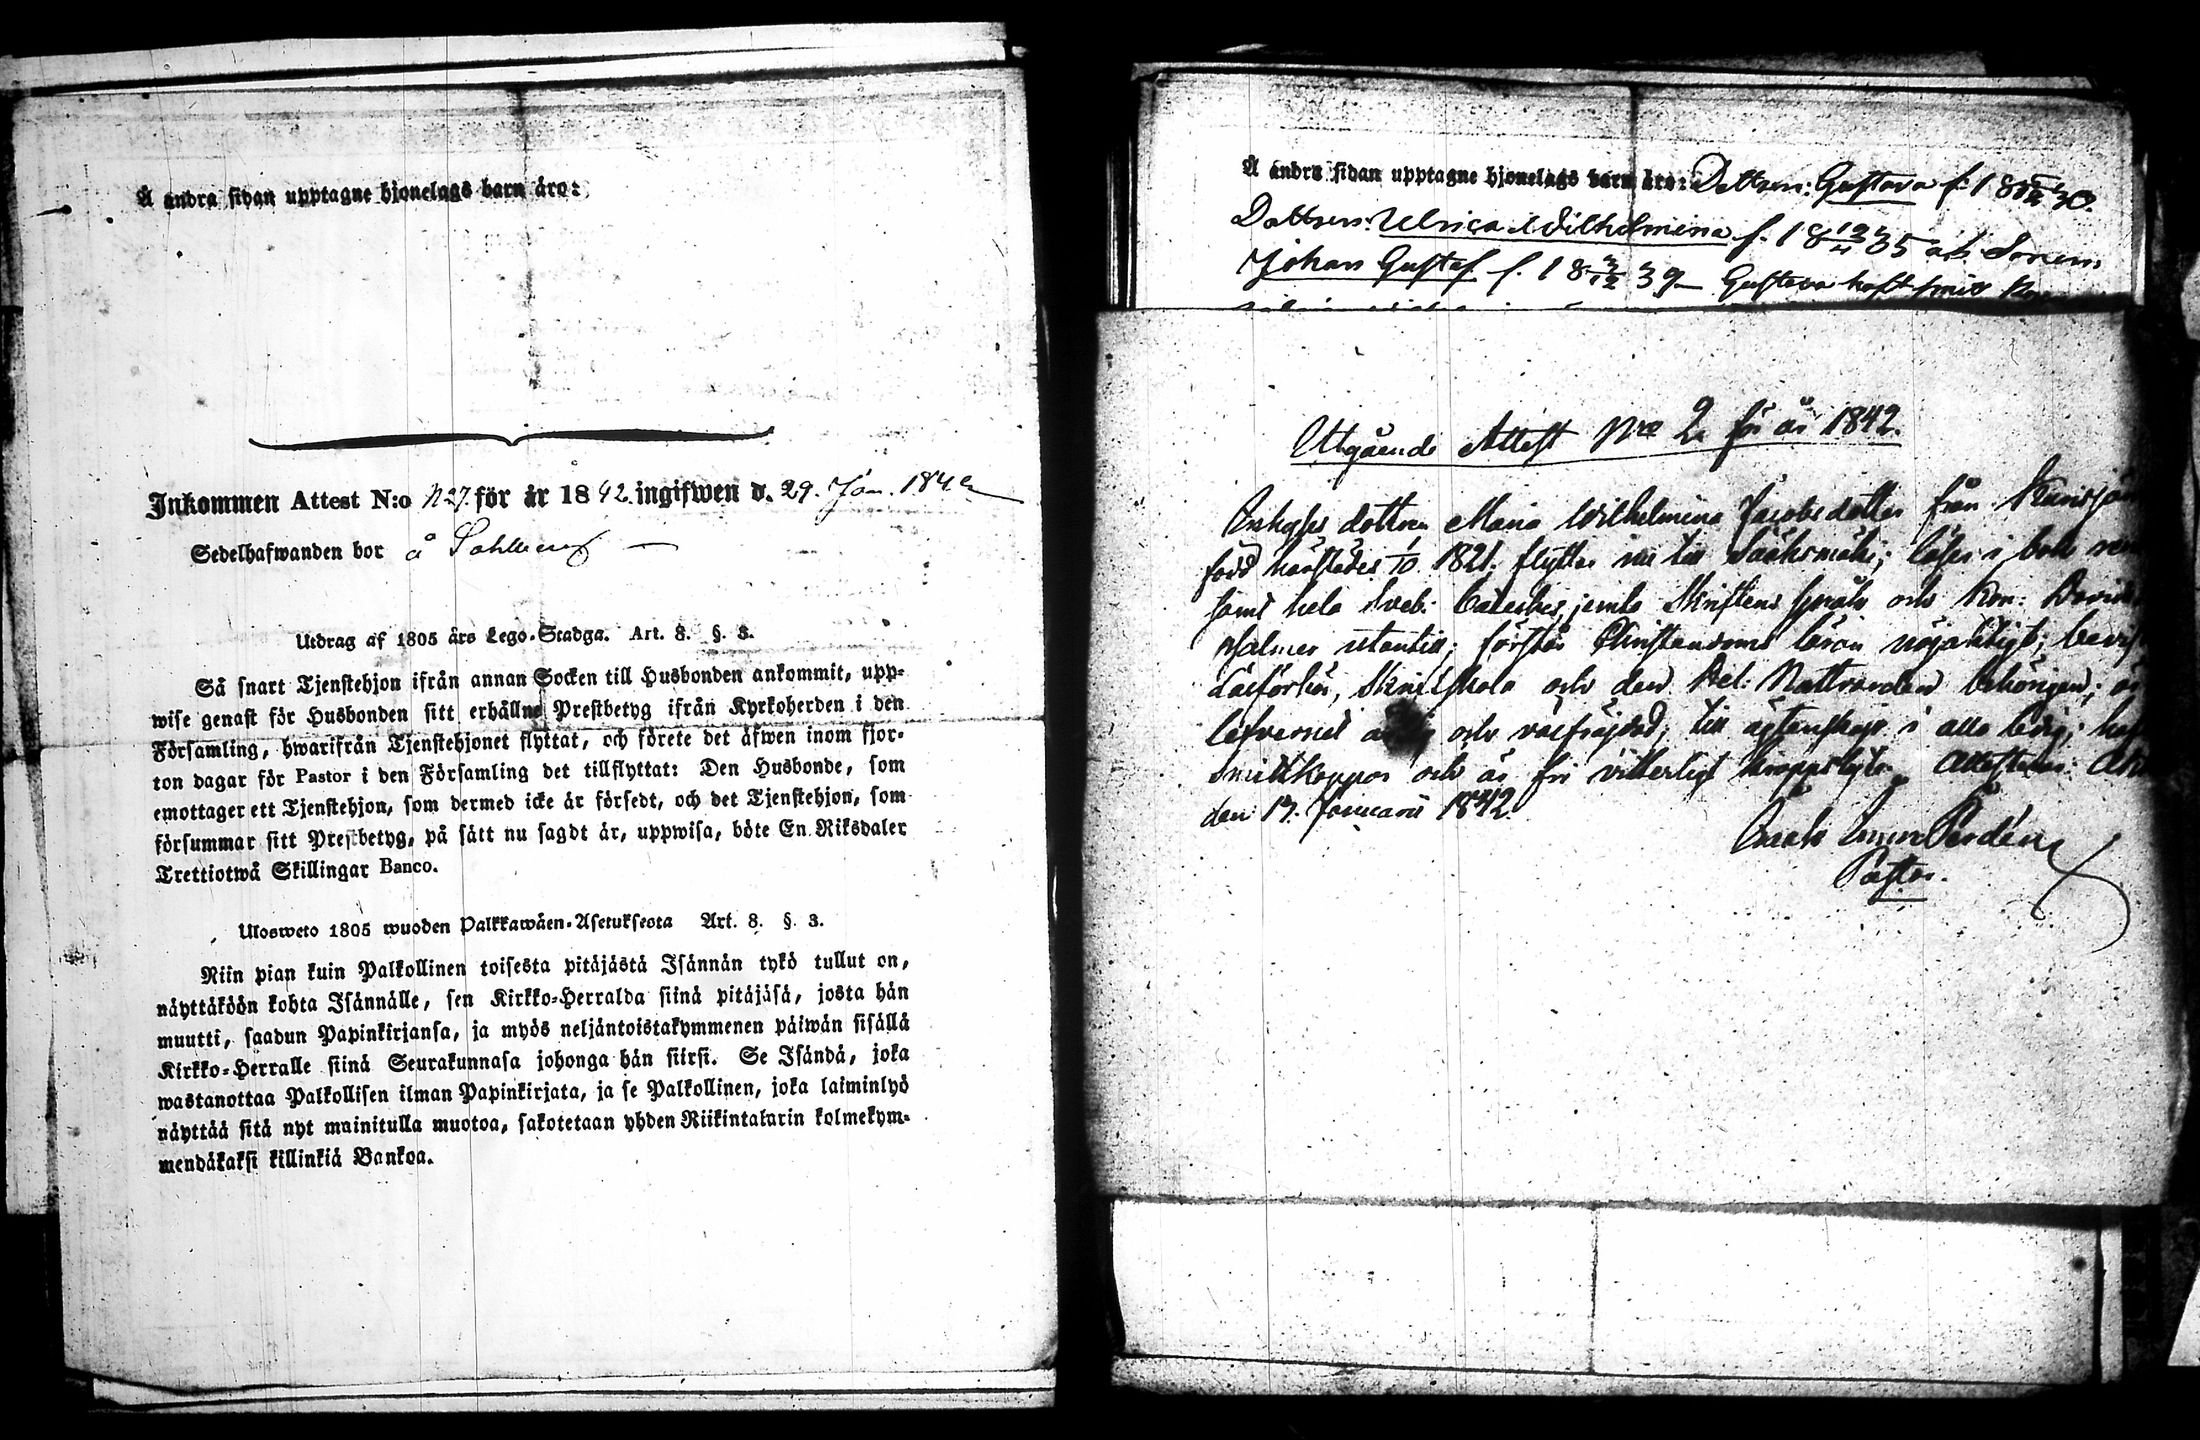 Å andra sidan upptagne hjonelags barn äro:
Inkommen Attest N:o N27. för år 1842. ingifwen d. 29. Jan. 1842
Sedelhafwanden bor å
Utdrag af 1805 års Lego-Stadga. Art. 8. §. 3.
Så snart Tjenstehjon ifrån annan Socken till Husbonden ankommit, upp-
wise genast för Husbonden sitt erhållne Prestbetyg ifrån Kyrkoherden i den
Församling, hwarifrån Tjenstehjonet flyttat, och förete det äfwen inom fjor-
ton dagar för Pastor i den Församling det tillflyttat: Den Husbonde, som
emottager ett Tjenstehjon, som dermed icke är försedt, och det Tjenstehjon, som
försummar sitt Prestbetyg, på sätt nu sagdt är, uppwisa, böte En Riksdaler
Trettiotwå Skillingar Banco.
Ulosweto 1805 wuoden Palkkawäen-Asetuksesta Art. 8. §. 3.
Niin pian kuin Palkollinen toisesta pitäjästä Isännän tykö tullut on,
näyttäköön kohta Isännälle, sen Kirkko-Herralda siinä pitäjäsä, josta hän
muutti, saadun Papinkirjansa, ja myös neljäntoistakymmenen päiwän sisällä
Kirkko-Herralle siinä Seurakunnasa johonga hän siirsi. Se Isändä, joka
wastanottaa Palkollisen ilman Papinkirjata, ja se Palkollinen, joka laiminlyö
näyttää sitä nyt mainitulla muotoa, sakotetaan yhden Riikintalarin kolmekym-
mendäkaksi killinkiä Bankoa.
Å andra sidan upptagne hjonelags barn äro: Dottren: Gustava f. 18 30.
Dottren: Ulrica Wilhelmina f. 18 35 och Sonen:
Johan Gustaf f. 18 3/12 39 Gustava haft
Utgående Attest Nro 2 för år 1842.
dottren Maria Wilhelmina Jacobsdotter från
född härstädes 1/10 1821. flyttar nu till Sääksmäki; läser i bok
samt hela Sveb. Cateches jemte Skriftens språk och Kon: Davids
psalmer utantill; förstår Christendoms läran nöjaktigt; bevist
Läsförhör, Skriftskola och den Hel: Nattvarden behörigen; är
lefvernet och välfräjdad; till ägtenskap i allo ledig; haft
Smittkoppor och är fri vitterligt kroppslyte. Attesterar:
den 13. Januarii 1842.
Pastor.